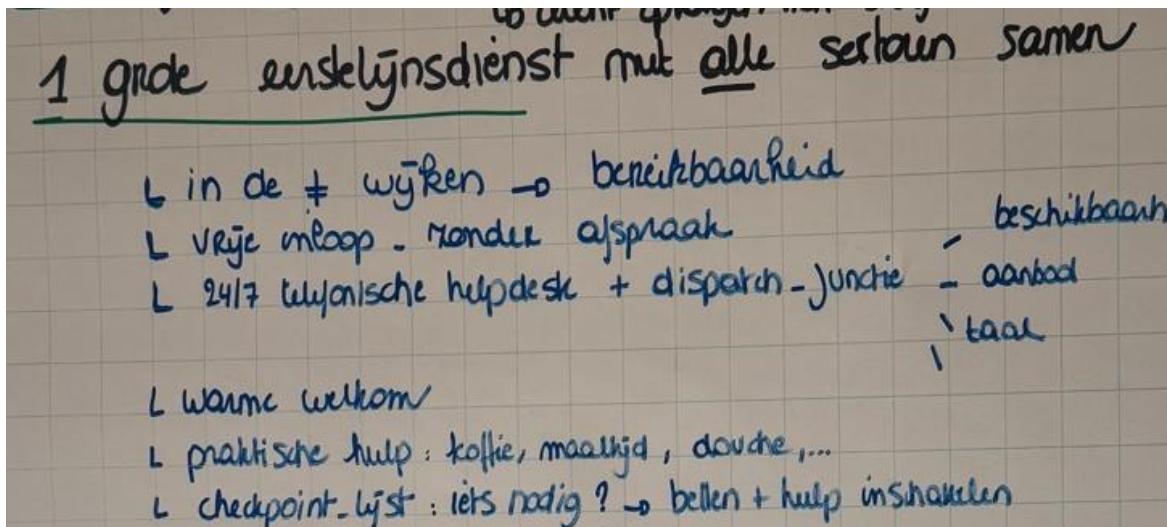 1 grote eerstelijnsdienst met alle sectoren samen
↳ in de ≠ wijken → bereikbaarheid
↳ vrije inloop - zonder afspraak
↳ 24/7 telefonische helpdesk + dispatch-functie - beschikbaarh
- aanbod
- taal
↳ warme welkom
↳ praktische hulp : koffie, maaltijd, douche,...
↳ checkpoint-lijst : iets nodig ? → bellen + hulp inschakelen